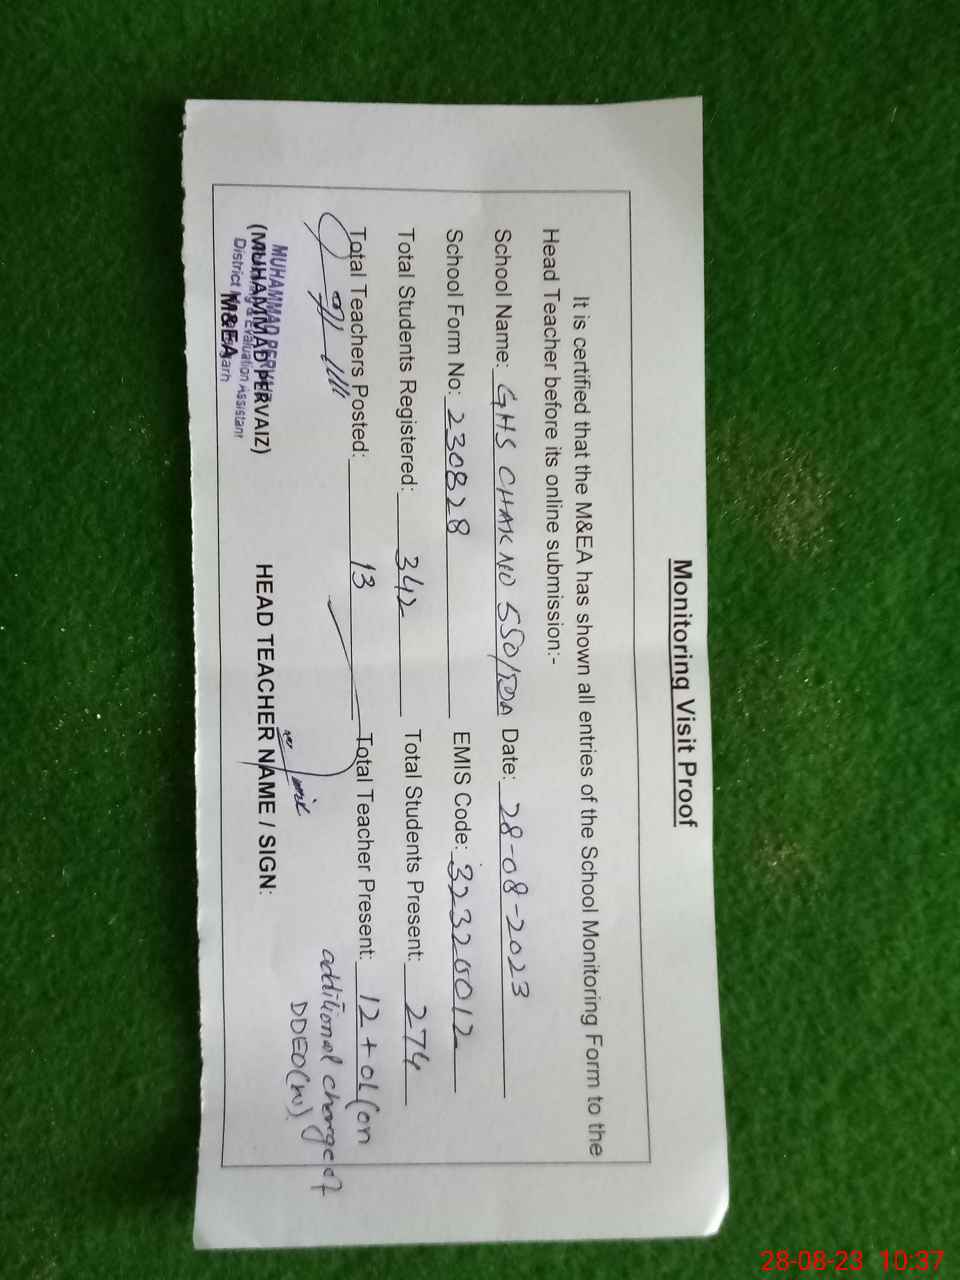 Monitoring Visit Proof
It is certified that the M&EA has shown all entries of the School Monitoring Form to the
Head Teacher before its online submission:-
School Name: GHS CHAK NO 550/TDA Date: 28-08-2023
School Form No: 230828 EMIS Code: 32320012
Total Students Registered: 342 Total Students Present: 274
Total Teachers Posted: 13 Total Teacher Present: 12 + 01 (on
additional charge of
DDEO(W)
(MUHAMMAD PERVAIZ) HEAD TEACHER NAME / SIGN:
M&EA
MUHAMMAD PERVAIZ
& Evaluation Assistant
District
28-08-23 10:37